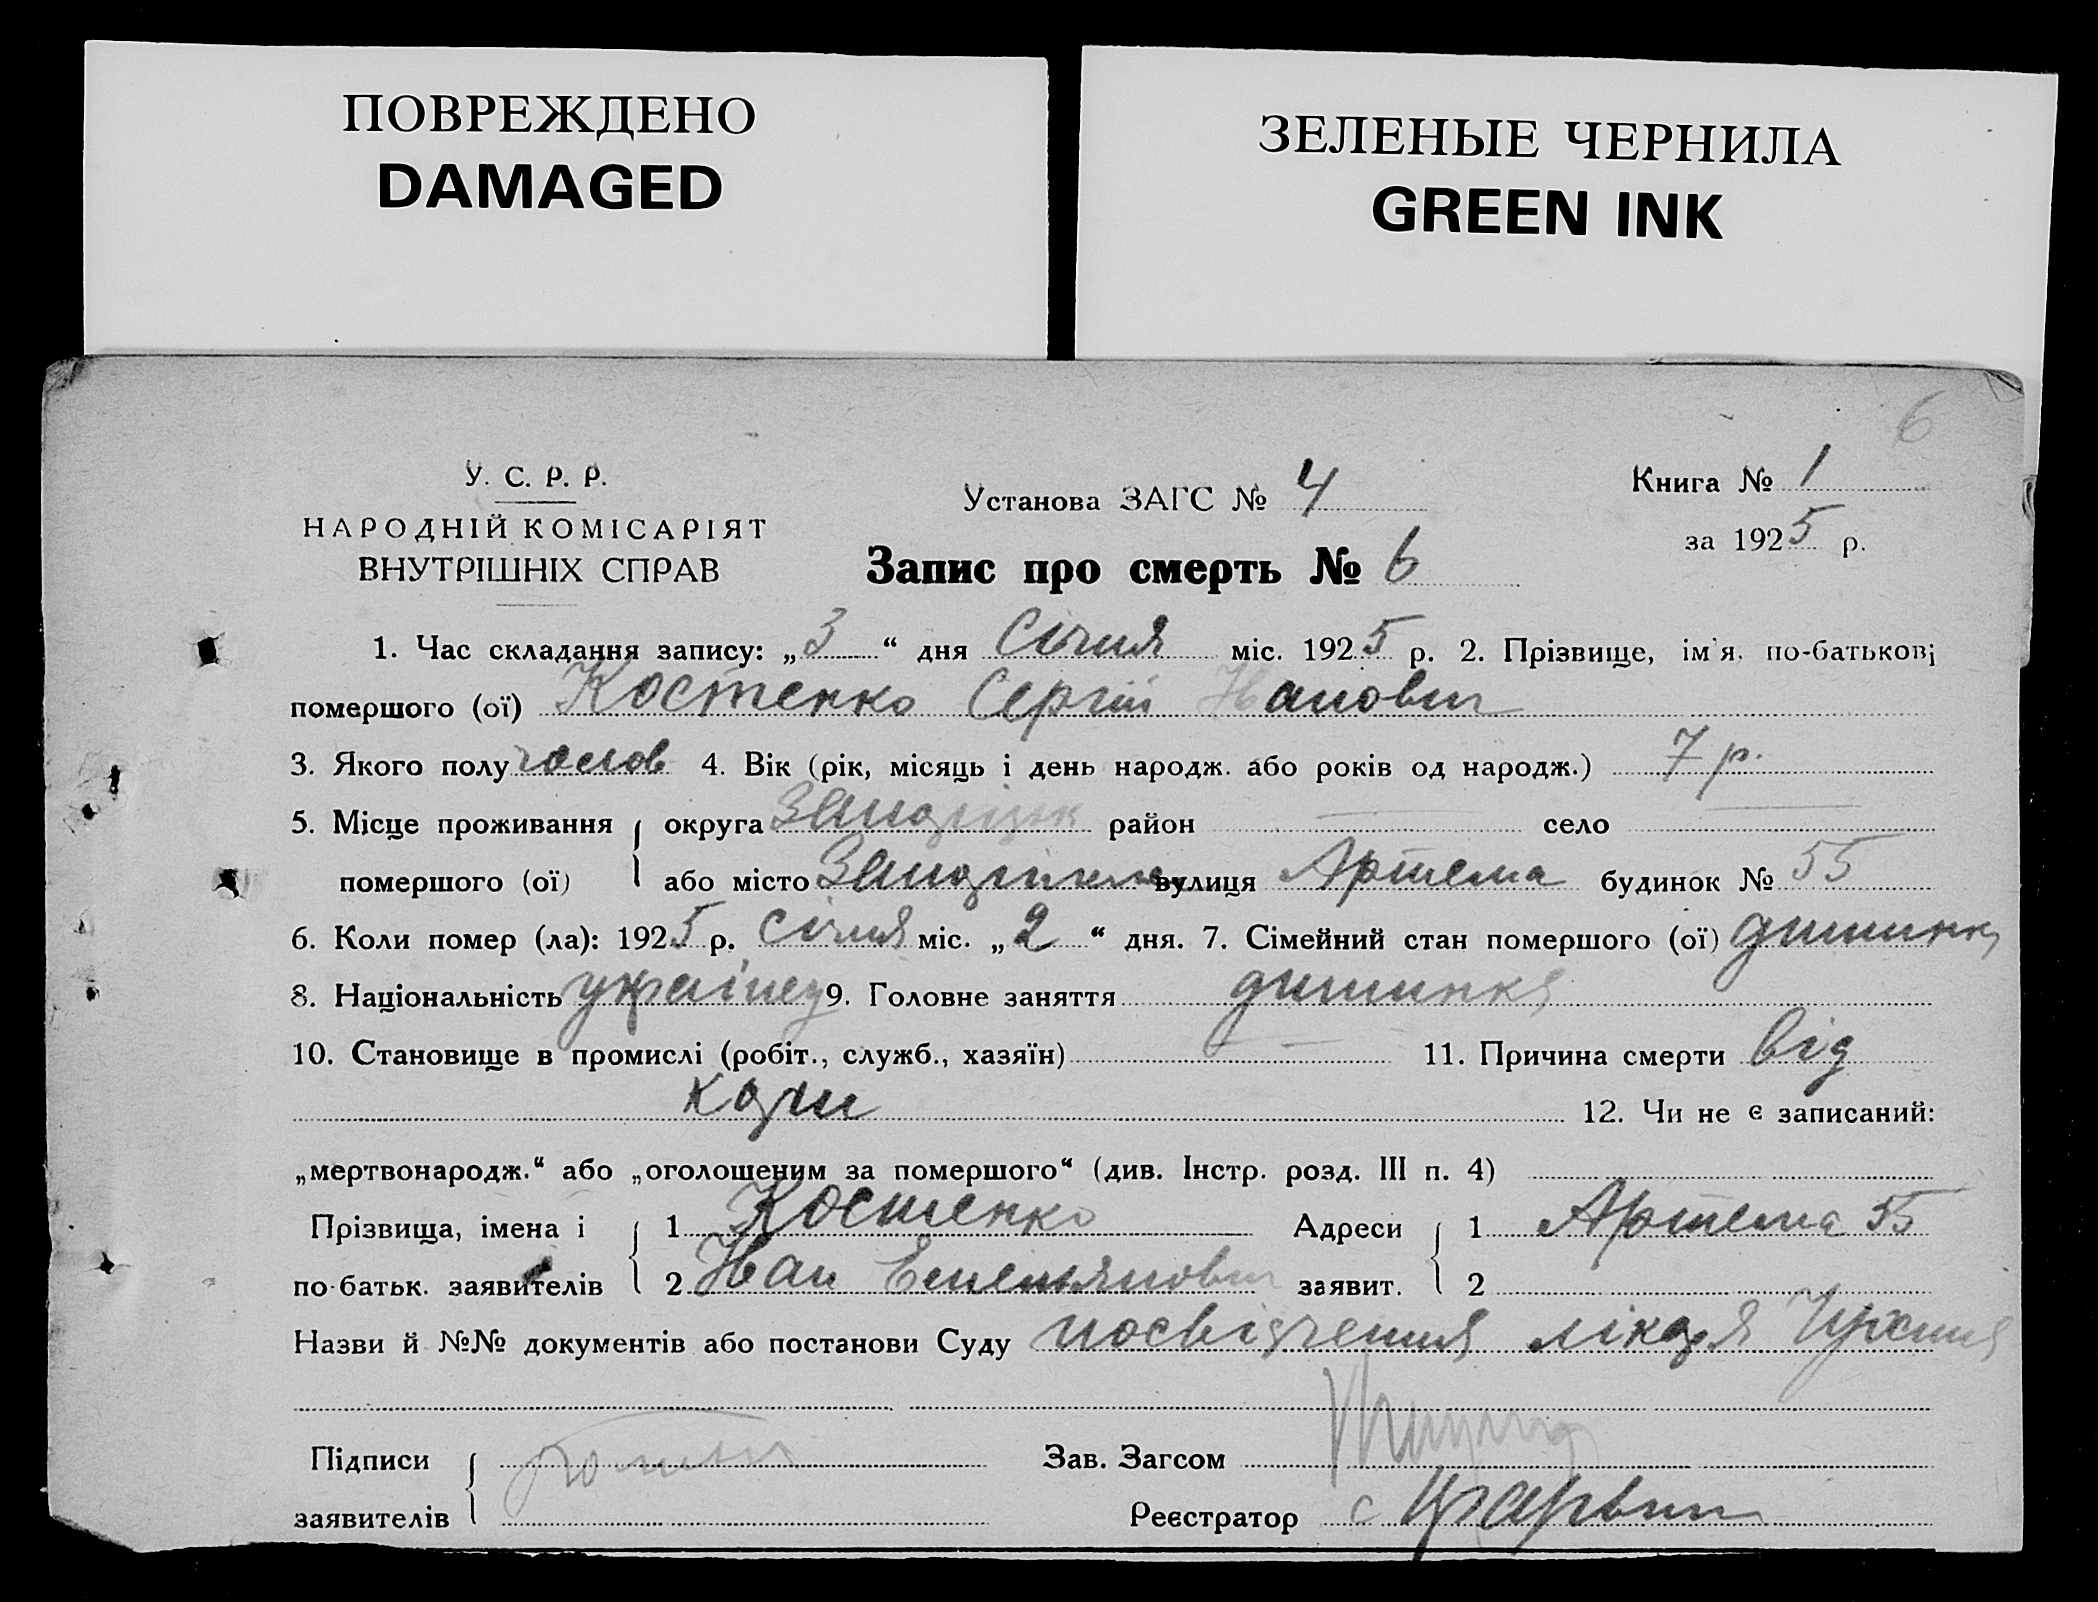 ПОВРЕЖДЕНО
DAMAGED
ЗЕЛЕНЫЕ ЧЕРНИЛА
GREEN INK
6
У. С. Р. Р.
НАРОДНІЙ КОМІСАРІЯТ
ВНУТРІШНІХ СПРАВ
Установа ЗАГС № 4
Книга № 1
за 1925 р.
Запис про смерть № 6
1. Час складання запису: „3“ дня Січня міс. 1925 р. 2. Прізвище, ім'я, по-батькові
помершого (ої) Костенко Сергій Іванович
3. Якого полу чолов 4. Вік (рік, місяць і день народж. або років од народж.) 7 р.
5. Місце проживання округа район — село —
помершого (ої) або місто вулиця Артема будинок № 55
6. Коли помер (ла): 1925 р. Січня міс. „2“ дня. 7. Сімейний стан помершого (ої) дитинка
8. Національність українец 9. Головне заняття дитинка
10. Становище в промислі (робіт., служб., хазяїн) — 11. Причина смерти від
кору 12. Чи не є записаний:
„мертвонародж.“ або „оголошеним за помершого“ (див. Інстр. розд. III п. 4)
Прізвища, імена і 1 Костенко Адреси 1 Артема 55
по-батьк. заявителів 2 Іван Емельянович заявит. 2
Назви й №№ документів або постанови Суду посвідчення лікаря
Підписи Зав. Загсом
заявителів Реєстратор